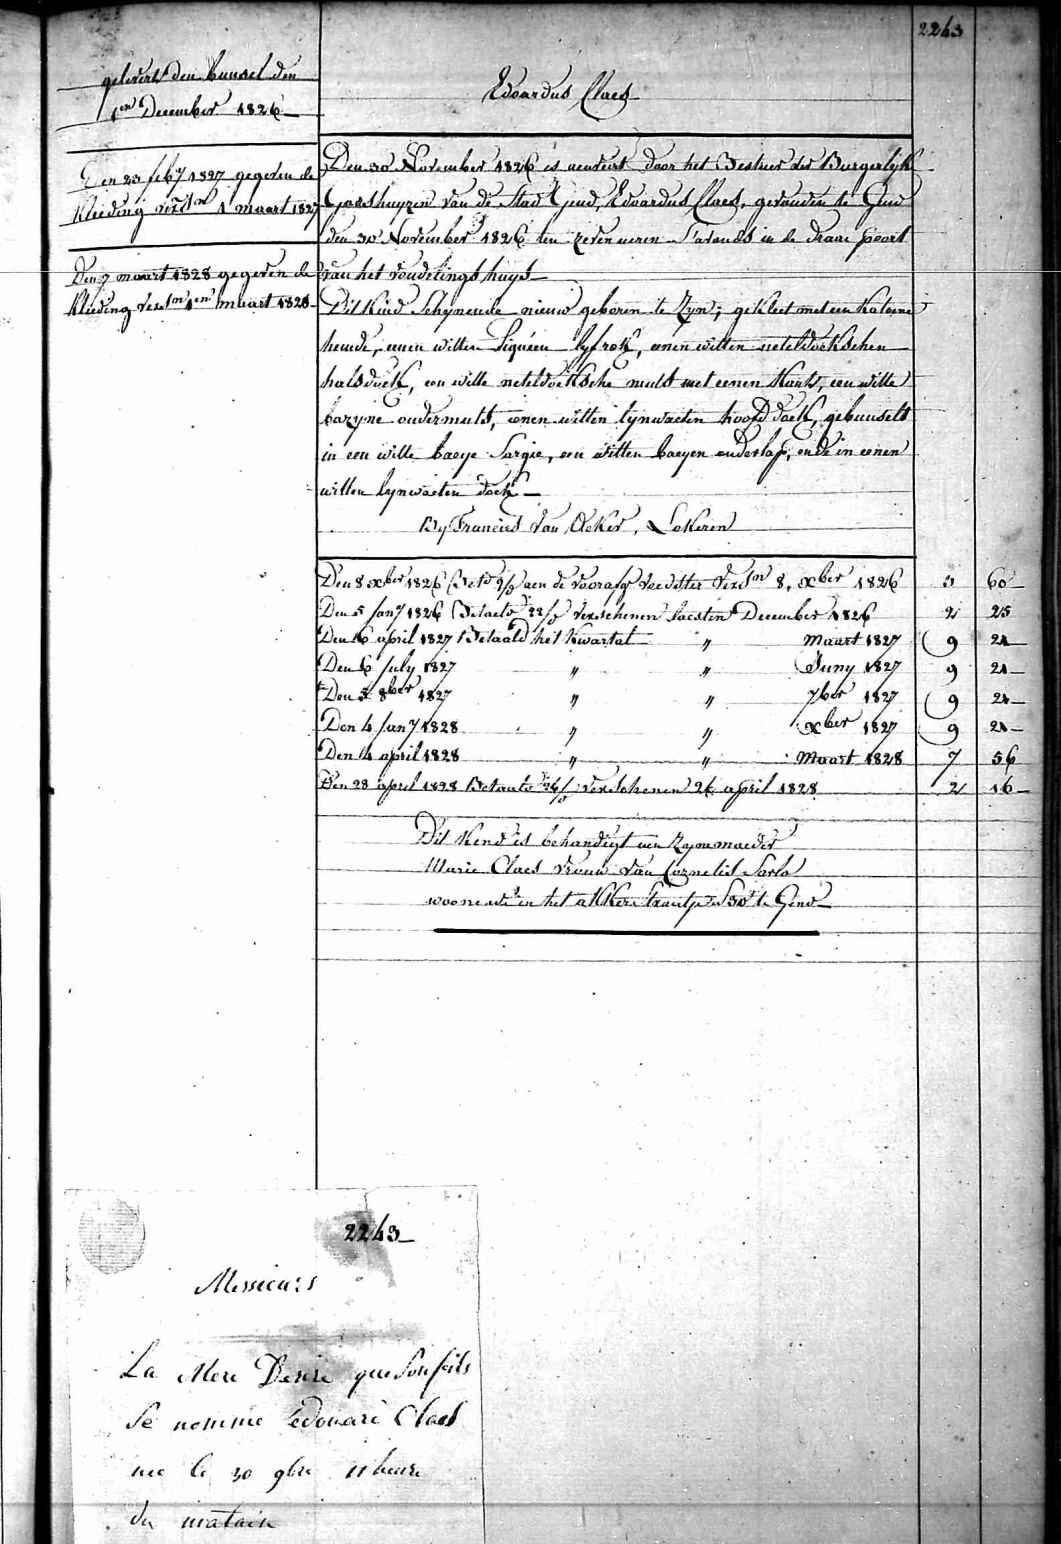 2243
gelevert den bunsel den
1en December 1826
Den 23 feby 1827 gegeven de
kleeding versn 1 maart 1827
Den 7 maart 1828 gegeven de
kleeding versn 1en maart 1828
Edoardus Claes
Den 30 November 1826 is aenveirt door het Bestuer der Burgerlyke
Gasthuyzen van de Stad Gend, Edoardus Claes, gevonden te Gend
den 30 November 1826 ten zeven ueren s'avonds in de draai poort
van het vondelings huys
Dit Kind Schynende nieuw geboren te Zyn; gekleet met een Katoene
hemde, eenen witten piquéen lyfrok, eenen witten neteldoekschen
halsdoek, een witte neteldoeksche muts met eenen Kant, een witte
bazyne ondermuts, eenen witten lynwaeten hoofd doek, gebunselt
in een witte baeye Sargie, een witten baeyen onderlap, ende in eenen
witten lynwaeten doek
By Francies Van Acker, Lokeren
Den 8 xber 1826 aen de voorzg versn 8, xber 1826 3 60
Den 5 jany 1826 Betaelt verschenen laesten December 1826 2 25
Den 16 april 1827 Betaeld het Kwartal " maart 1827 9 24
Den 6 July 1827 " " Juny 1827 9 24
Den 5 8ber 1827 " " 7ber 1827 9 24
Den 4 Jany 1828 " " xber 1827 9 24
Den 14 april 1828 " " Maart 1828 7 56
Den 28 april 1828 Betaelt verschenen 26 april 1828 2 16
Dit Kend is behandigt aen Zyne moeder
Marie Claes vrouw van Cornelis Sarlo
woonende in het akkerstraetje te Gend
2243
Messieurs
La Mere Desire que son fils
Se nomme Edouard Claes
nee le 30 9bre 11 heure
du matain